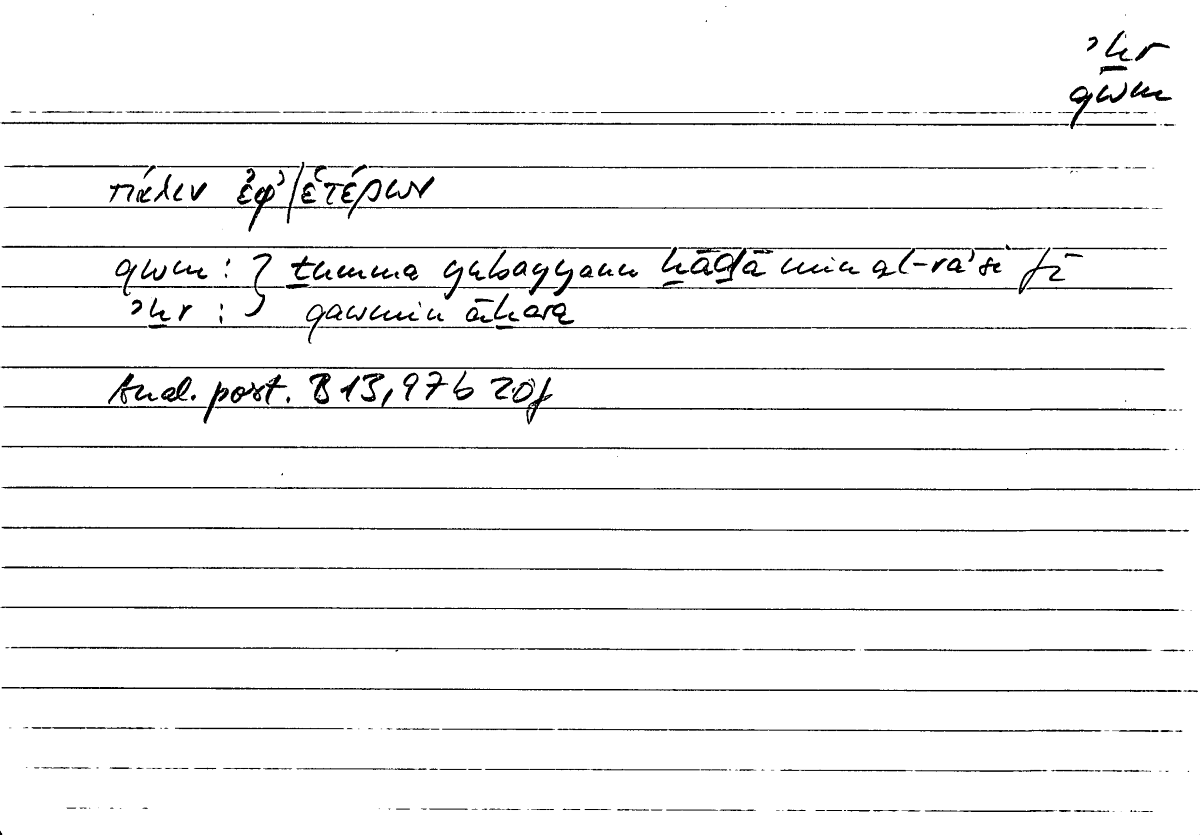 ʾẖr
qwm
πάλιν ἐφ᾽/ἑτέρων
qwm : } ṯumma yubayyanu ẖāḏā min al-raʾsi fī
ʾẖr : } qawmin āẖara
Anal. post. B 13, 97 b 20f